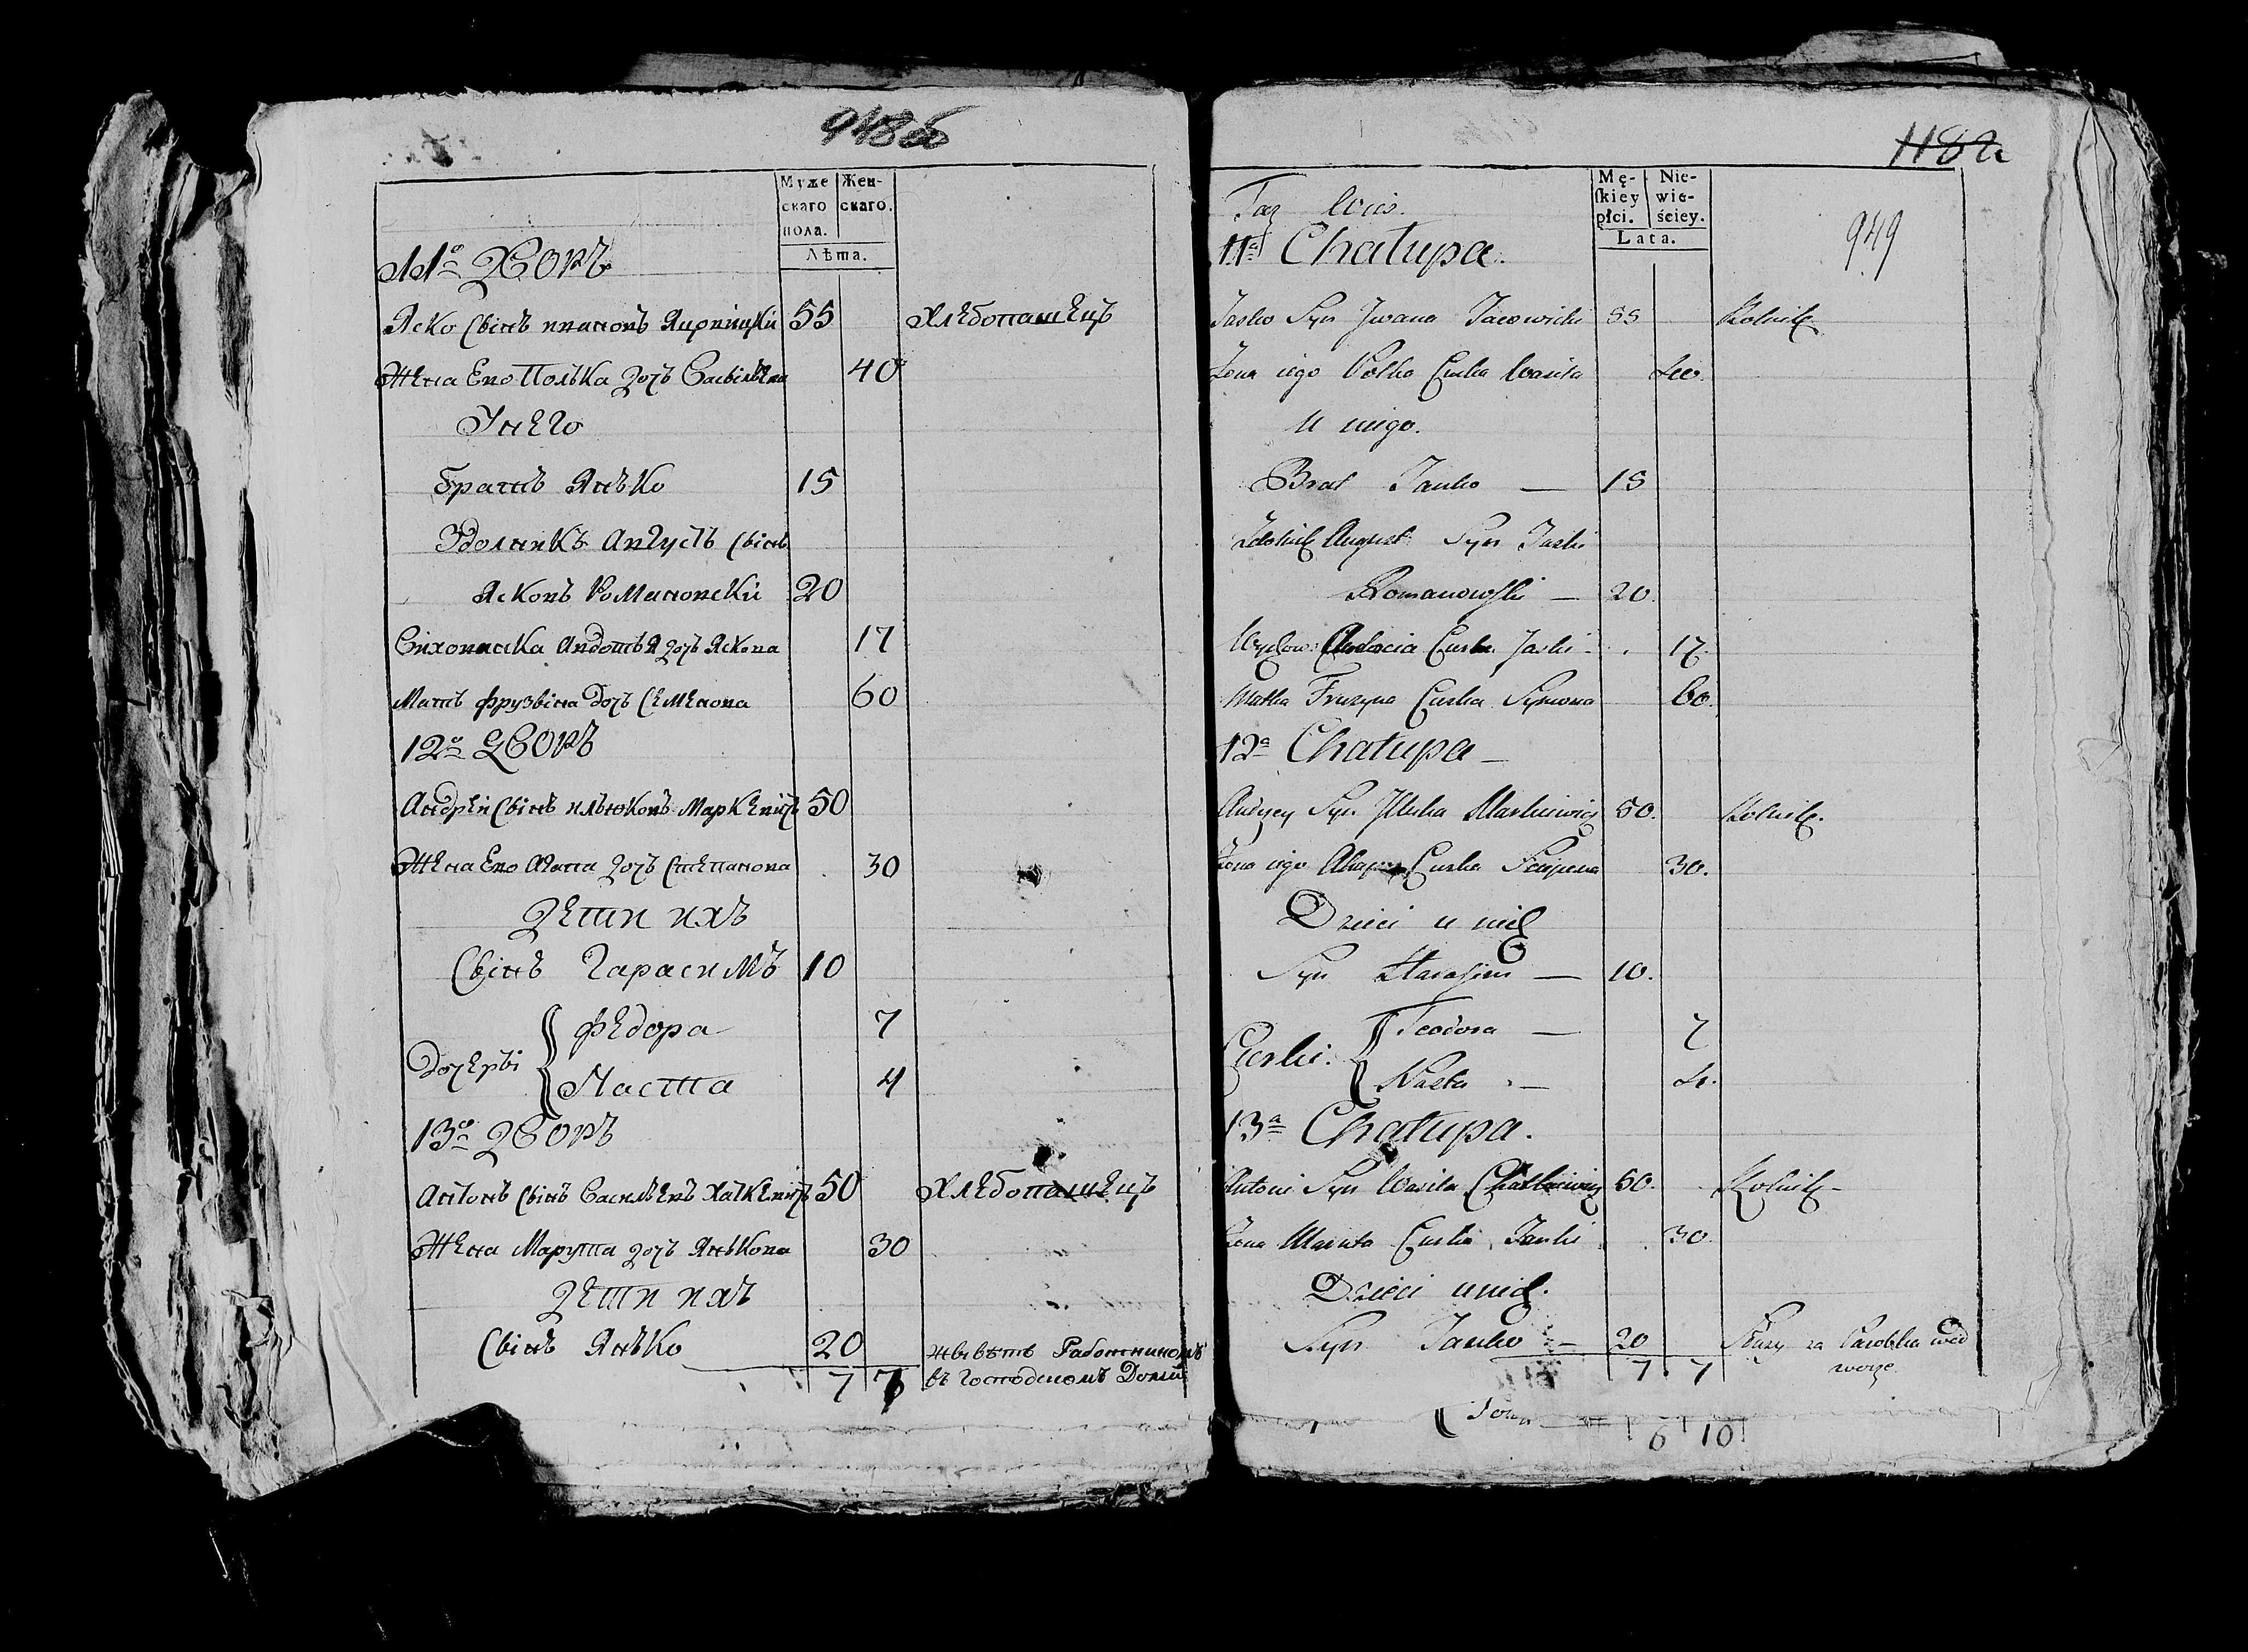 948об
Муже
скаго
пола.
Жен-
скаго.
Лѣта.
11о Дворъ
Яско Свінъ ивановъ 55 хлЕбопашЕцъ
ЖЕна Ево Полька дочь Васильева 40
УнЕго
братъ Янько 15
Августъ Свінъ
Ясковъ Романовскій 20
Авдотья дочь Яскова 17
Мать Фрузвіна дочь СЕмЕнова 60
12о Дворъ
АндрЕй Свінъ ильюковъ МаркЕвичъ 50
ЖЕна Ево Агапа дочь СтЕпанова 30
ДЕти ихъ
Свінъ Гарасимъ 10
дочЕрві
фЕдора 7
Наста 4
13о Дворъ
Антонъ Свінъ ВасильЕвъ ХаткЕвичъ 50 хлЕбопашЕцъ
ЖЕна Марута дочь Янькова 30
ДЕти ихъ
Свінъ Янько 20 живѣтъ Работникомъ
7 7 въ Господскомъ Доми
1182
Mę-
ſkiey
płci.
Nie-
wie-
ściey.
Lata.
949
11a Chałupa.
Jasko Syn Jwana 55 Rolnik
Żona iego Polka Curka Wasila 40.
U niego.
Brat Janko — 15
August Syn Jaski
Romanowski — 20.
Curka Jaski 17.
Matka Fruzyna Curka Symona 60.
12a Chałupa —
Andrzey Syn Jluka Markiewicz 50. Rolnik.
Żona iego Curka Sciepana 30.
Dzieci u nich
Syn Harasim — 10.
Curki.
Teodora — 7
Nasta — 4.
13a Chałupa.
Antoni Syn Wasila Chatkiewicz 50. Rolnik —
Żona Maruta Curka Janki 30.
Dzieci u nich.
Syn Janko — 20 Służy za Parobka we d
7. 7 worze.
6 10